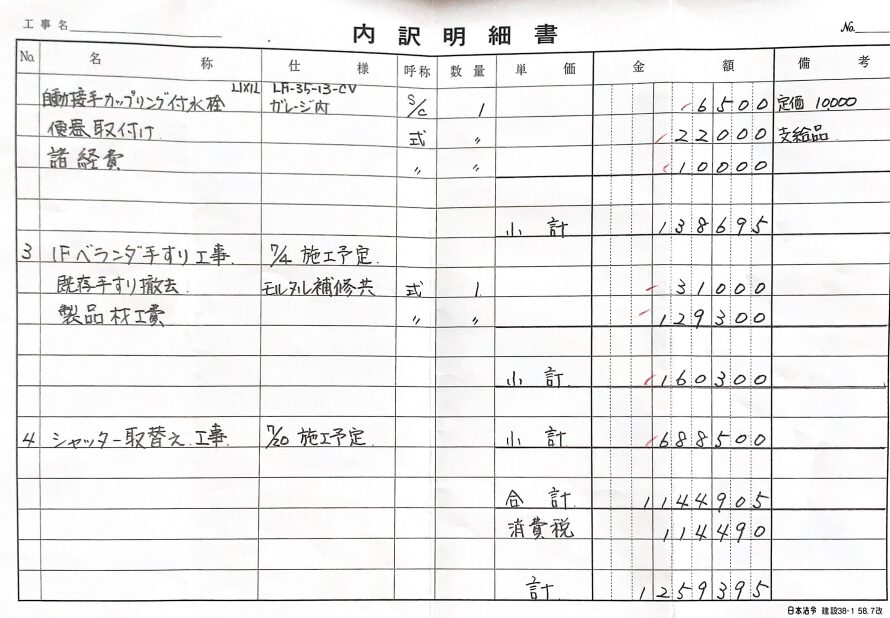 工事名
内訳明細書
No.
No. 名称 仕様 呼称 数量 単価 金額 備考
自動接手カップリング付水栓 LIXIL LH-35-13-CV ガレージ内 S/C 1 6500 定価 10,000
便器取付け 式 〃 22000 支給品
諸経費 〃 〃 10000
小計 138695
3 1Fベランダ手すり工事 7/4 施工予定.
既存手すり撤去. モルタル補修共 式 1 31000
製品材工費 〃 〃 129300
小計. 160300
4 シャッター取替え工事. 7/20 施工予定. 小計 688500
合計. 1144905
消費税 114490
計. 1259395
日本法令 建設38-1 58.7改